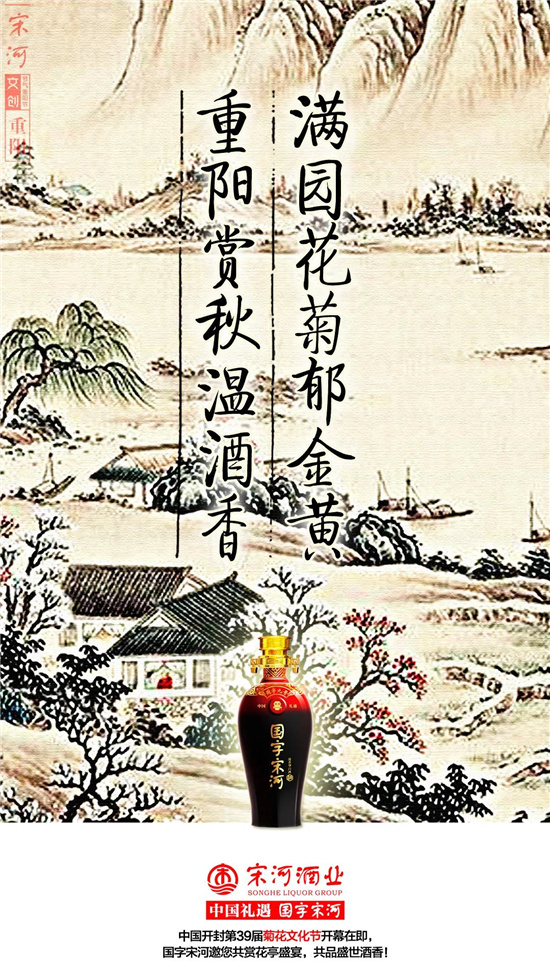 宋河
文创
重阳
满园花菊郁金黄
重阳赏秋温酒香
国字宋河
宋河酒业
SONGHE LIQUOR GROUP
中国礼遇 国字宋河
中国开封第39届菊花文化节开幕在即，
国字宋河邀您共赏花亭盛宴，共品盛世酒香！